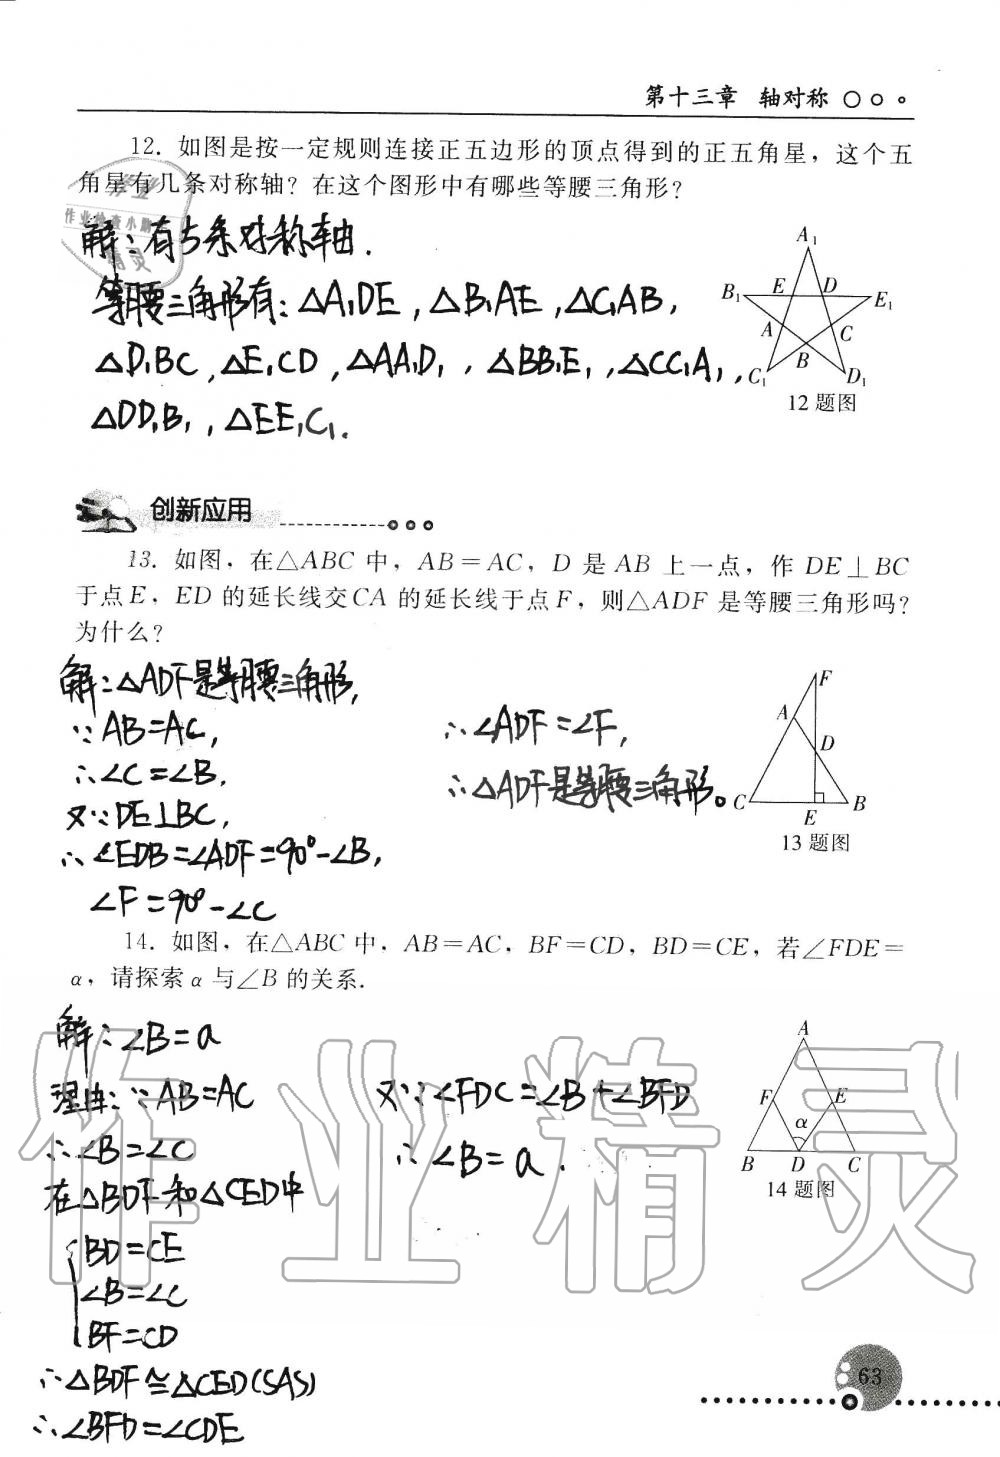 第十三章 轴对称
12. 如图是按一定规则连接正五边形的顶点得到的正五角星，这个五
角星有几条对称轴？在这个图形中有哪些等腰三角形？
解：有5条对称轴.
等腰三角形有：△A₁DE，△B₁AE，△C₁AB，
△D₁BC，△E₁CD，△AA₁D₁，△BB₁E₁，△CC₁A₁，
△DD₁B₁，△EE₁C₁.
A₁
B₁ E D E₁
A C
C₁ B D₁
12题图
创新应用
13. 如图，在△ABC 中，AB＝AC，D 是 AB 上一点，作 DE⊥BC
于点E，ED 的延长线交CA 的延长线于点F，则△ADF 是等腰三角形吗？
为什么？
解：△ADF是等腰三角形，
∵AB=AC，
∴∠C=∠B.
又∵DE⊥BC，
∴∠EDB=∠ADF=90°-∠B，
∠F=90°-∠C
∴∠ADF=∠F，
∴△ADF是等腰三角形。
F
A
D
C E B
13题图
14. 如图，在△ABC 中，AB＝AC，BF＝CD，BD＝CE，若∠FDE＝
α，请探索α与∠B 的关系.
解：∠B=a
理由：∵AB=AC
∴∠B=∠C
在△BDF和△CED中
BD=CE
∠B=∠C
BF=CD
∴△BDF≌△CED(SAS)
∴∠BFD=∠CDE
又∵∠FDC=∠B+∠BFD
∴∠B=a.
A
F E
α
B D C
14题图
作业精灵
作业
作业检查小助手
精灵
63